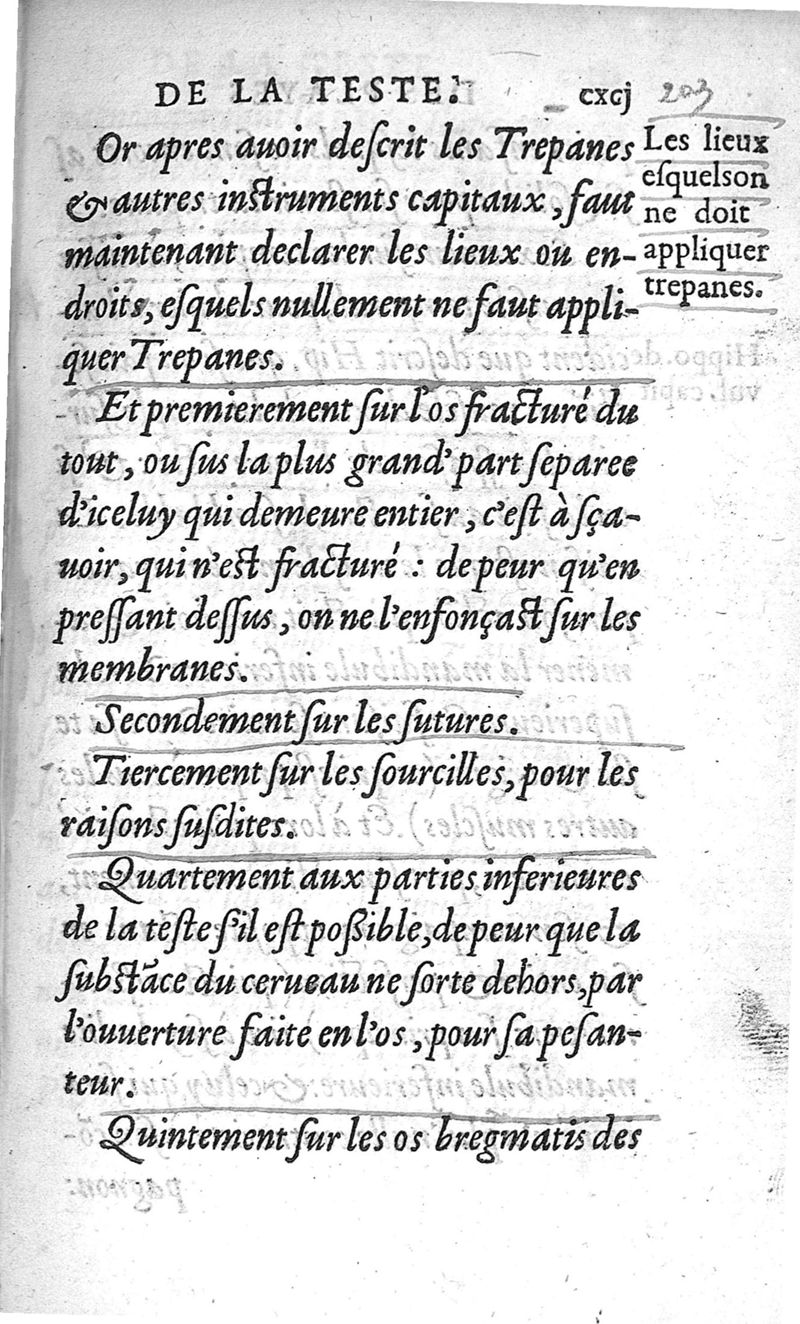 DE LA TESTE. cxcj 203
Or apres auoir deſcrit les Trepanes
& autres instruments capitaux, faut
maintenant declarer les lieux ou en-
droits, eſquels nullement ne faut appli-
quer Trepanes.
Les lieux
eſquelson
ne doit
appliquer
trepanes.
Et premierement ſur l'os fracturé du
tout, ou ſus la plus grand' part ſeparee
d'iceluy qui demeure entier, c'eſt à ſça-
uoir, qui n'eſt fracturé : de peur qu'en
preſſant deſſus, on ne l'enfonçaſt ſur les
membranes.
Secondement ſur les ſutures.
Tiercement ſur les ſourcilles, pour les
raiſons ſuſdites.
Quartement aux parties inferieures
de la teſte ſ'il eſt poßible, de peur que la
ſubſtãce du cerueau ne ſorte dehors, par
l'ouuerture faite en l'os, pour ſa peſan-
teur.
Quintement ſur les os bregmatis des